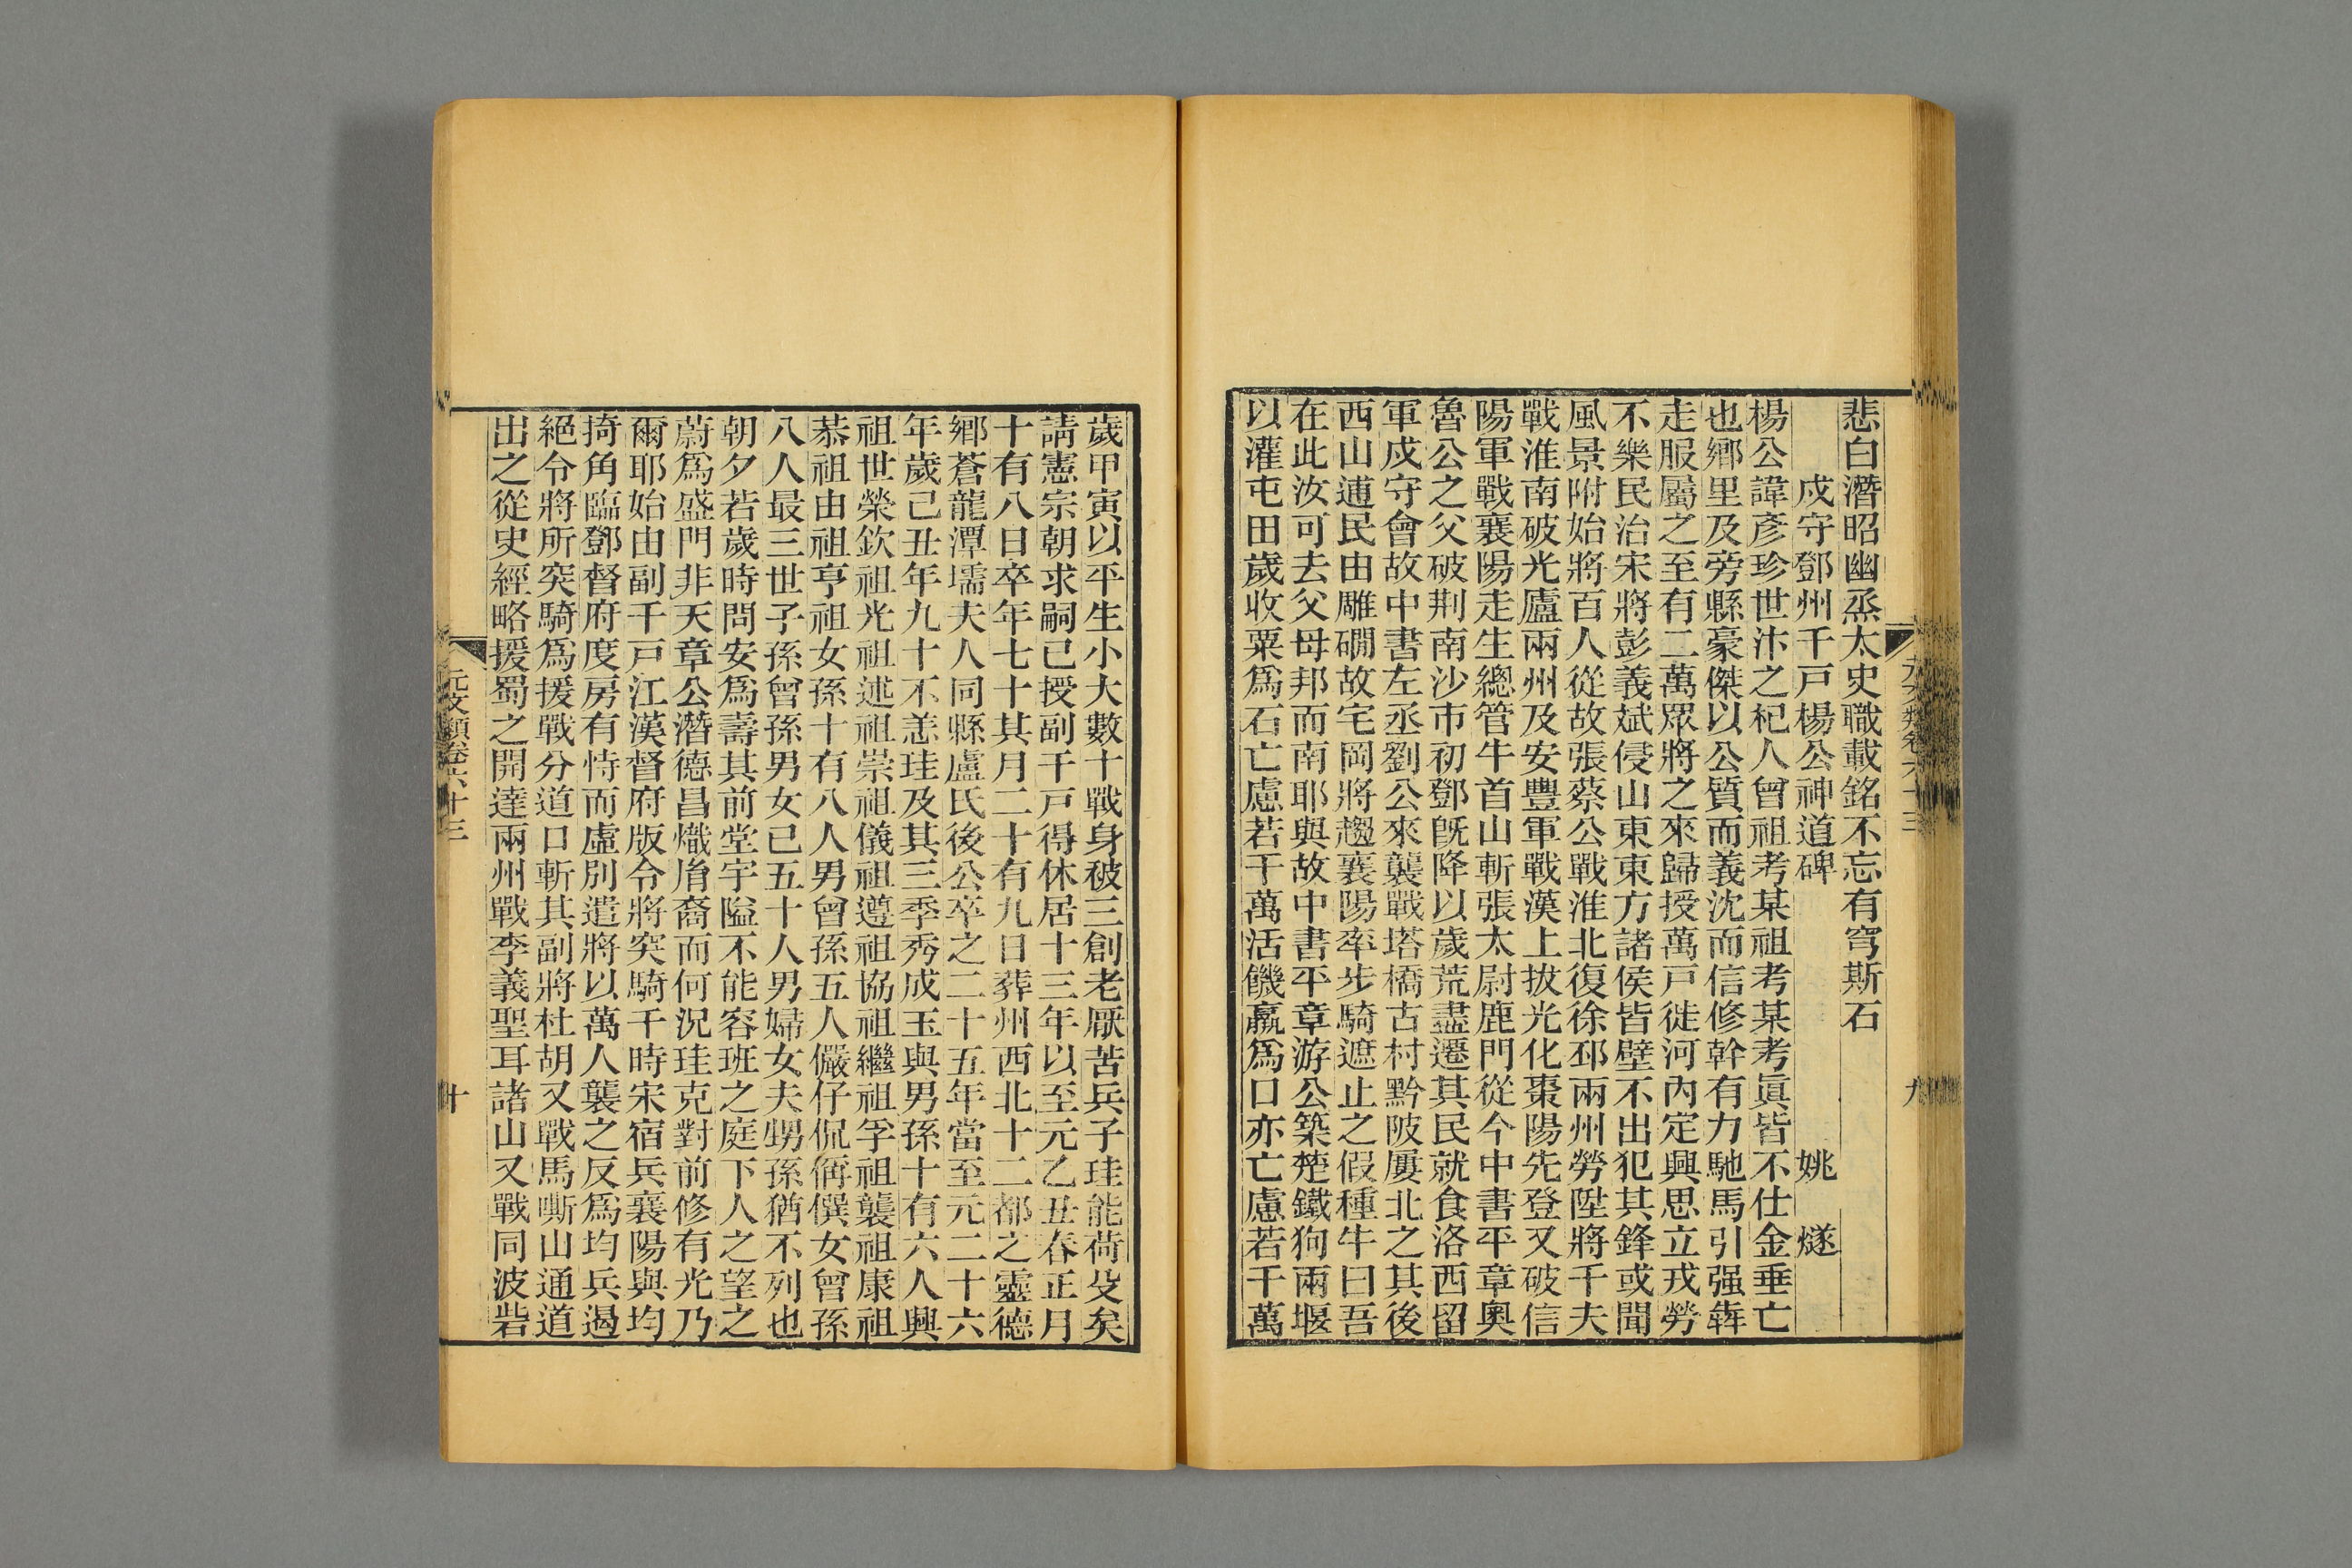 悲白潛昭幽烝太史職載銘不忘有穹斯石
戍守鄧州千戸楊公神道碑　姚　燧
楊公諱彥珍世汴之杞人曾祖考某祖考某考眞皆不仕金垂亡
也鄉里及旁縣豪傑以公質而義沈而信修幹有力馳馬引强犇
走服屬之至有二萬眾將之來歸授萬戸徙河內定興思立戎勞
不樂民治宋將彭義斌侵山東東方諸侯皆壁不出犯其鋒或聞
風景附始將百人從故張蔡公戰淮北復徐邳兩州勞陞將千夫
戰淮南破光廬兩州及安豐軍戰漢上拔光化棗陽先登又破信
陽軍戰襄陽走生總管牛首山斬張太尉鹿門從今中書平章奧
魯公之父破荆南沙市初鄧旣降以歲荒盡遷其民就食洛西留
軍戍守會故中書左丞劉公來襲戰塔橋古村黔陂屢北之其後
西山逋民由雕磵故宅岡將趨襄陽率步騎遮止之假種牛曰吾
在此汝可去父母邦而南耶與故中書平章游公築楚鐵狗兩堰
以灌屯田歲收粟爲石亡慮若干萬活饑羸爲口亦亡慮若干萬
元文類卷六十三
九
歲甲寅以平生小大數十戰身破三創老厭苦兵子珪能荷殳矣
請憲宗朝求嗣已授副千戸得休居十三年以至元乙丑春正月
十有八日卒年七十其月二十有九日葬州西北十二都之靈德
鄉蒼龍潭壖夫人同縣盧氏後公卒之二十五年當至元二十六
年歲己丑年九十不恙珪及其三季秀成玉與男孫十有六人興
祖世榮欽祖光祖述祖崇祖儀祖遵祖協祖繼祖孚祖襲祖康祖
恭祖由祖亨祖女孫十有八人男曾孫五人儼仔侃偁僎女曾孫
八人最三世子孫曾孫男女已五十人男婦女夫甥孫猶不列也
朝夕若歲時問安爲壽其前堂宇隘不能容班之庭下人之望之
蔚爲盛門非天章公潛德昌熾胤裔而何況珪克對前修有光乃
爾耶始由副千戸江漢督府版令將突騎千時宋宿兵襄陽與均
掎角臨鄧督府度房有恃而虛別遣將以萬人襲之反爲均兵遏
絕令將所突騎爲援戰分道口斬其副將杜胡又戰馬嘶山通道
出之從史經略援蜀之開達兩州戰李義聖耳諸山又戰同波砦
元文類卷六十三
十